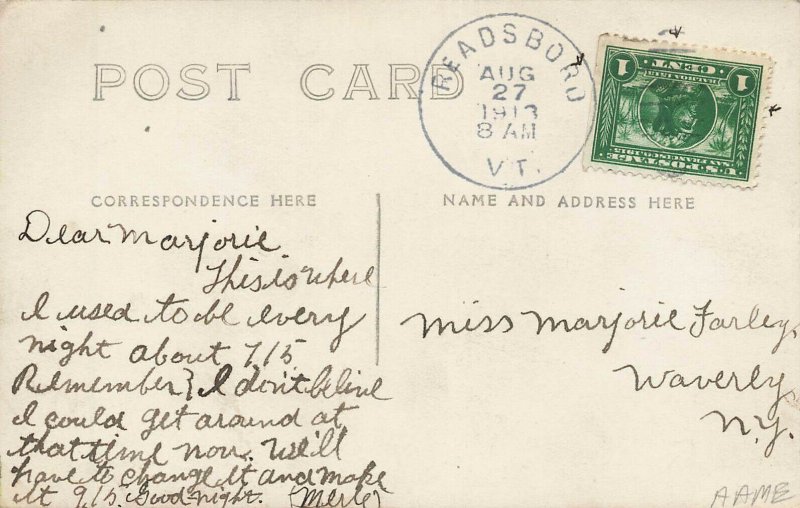 POST CARD
READSBORO
AUG
27
1913
8 AM
VT.
1 CENT 1
SAN FRANCISCO 1915
U.S. POSTAGE
CORRESPONDENCE HERE
NAME AND ADDRESS HERE
Dear Marjorie
This is where
I used to be every
night about 7/15
Remember? I don't belive
I could get around at
that time now. We'll
have to change it and make
it 9/15. Good-night. (Merle)
Miss Marjorie Farley,
Waverly,
N.Y.
AAME